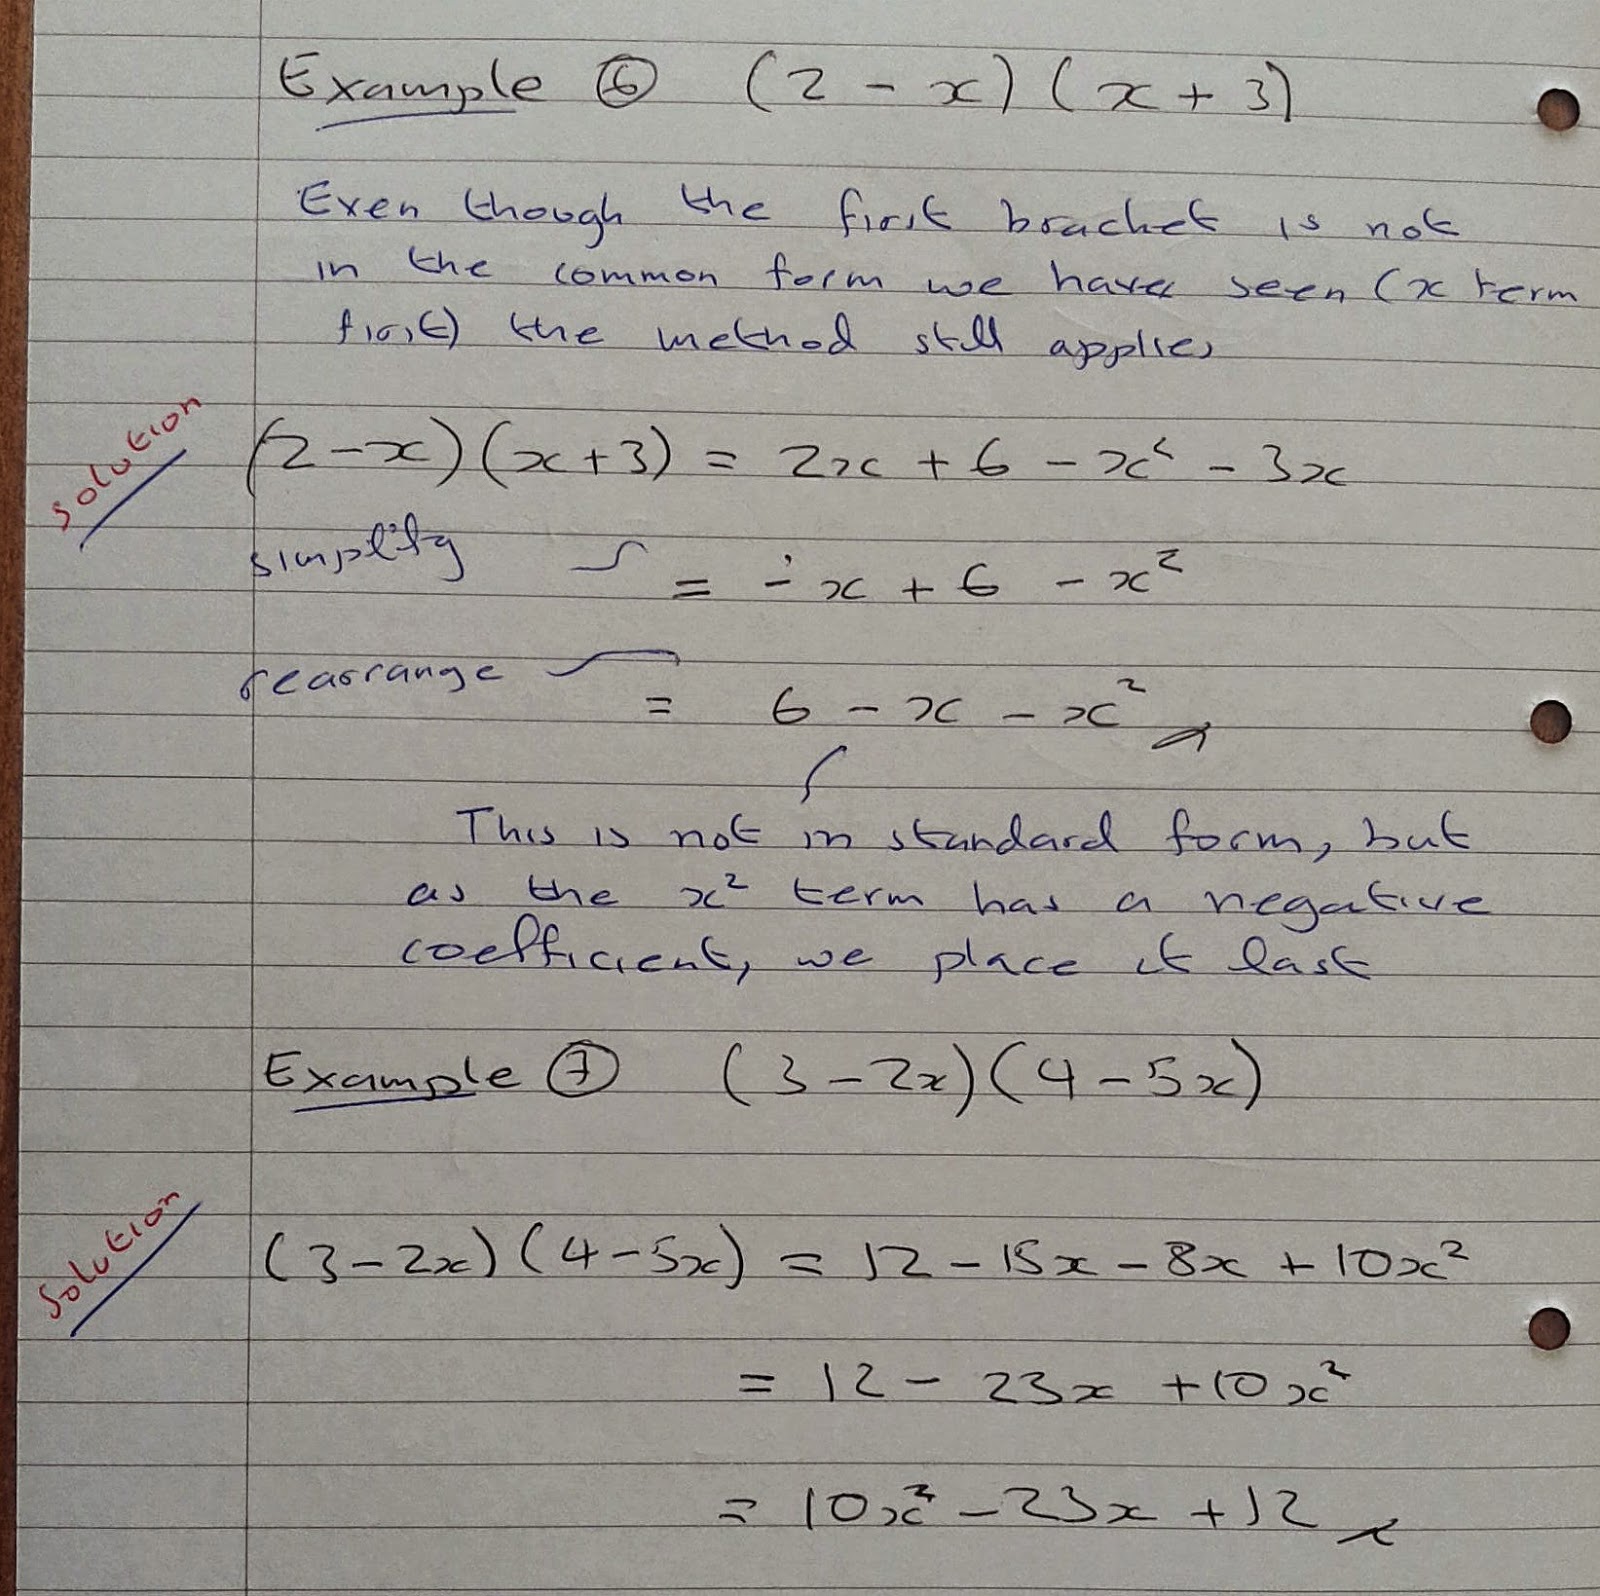 Example ⑥ (2 - x)(x + 3)
Even though the first bracket is not
in the common form we have seen (x term
first) the method still applies
Solution
(2 - x)(x + 3) = 2x + 6 - x² - 3x
simplify = - x + 6 - x²
rearrange = 6 - x - x²
This is not in standard form, but
as the x² term has a negative
coefficient, we place it last
Example ⑦ (3 - 2x)(4 - 5x)
Solution
(3 - 2x)(4 - 5x) = 12 - 15x - 8x + 10x²
= 12 - 23x + 10x²
= 10x² - 23x + 12